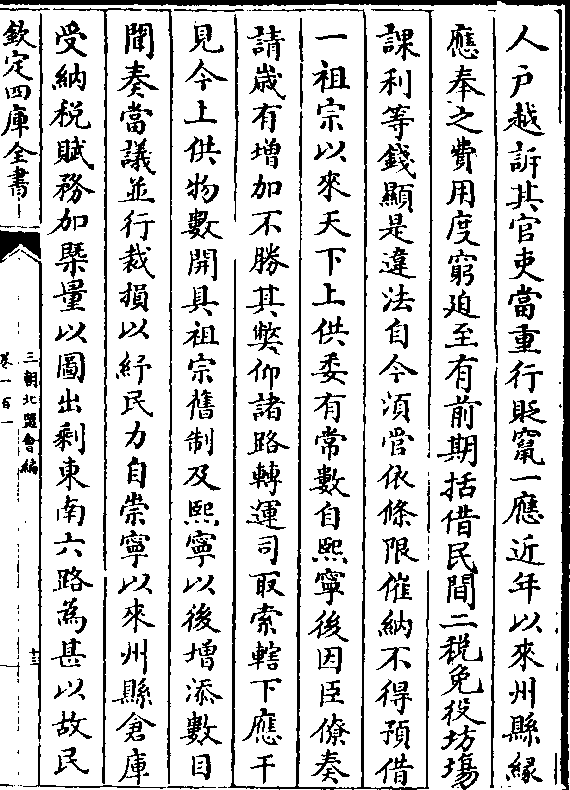 人户越訴其官吏當重行貶竄一應近年以來州縣緣
應奉之費用度窮廹至有前期括借民間二税免役坊塲
課利等錢顯是違法自今湏管依條限催納不得預借
一祖宗以來天下上供委有常數自熙寧後因臣僚奏
請歲有增加不勝其弊仰諸路轉運司取索轄下應干
見今上供物數開具祖宗舊制及熙寧以後增添數目
聞奏當議並行裁損以紓民力自崇寧以來州縣倉庫
受納税賦務加槩量以圖出剩東南六路為甚以故民
欽定四庫全書
三朝北盟會編
卷一百一
十三